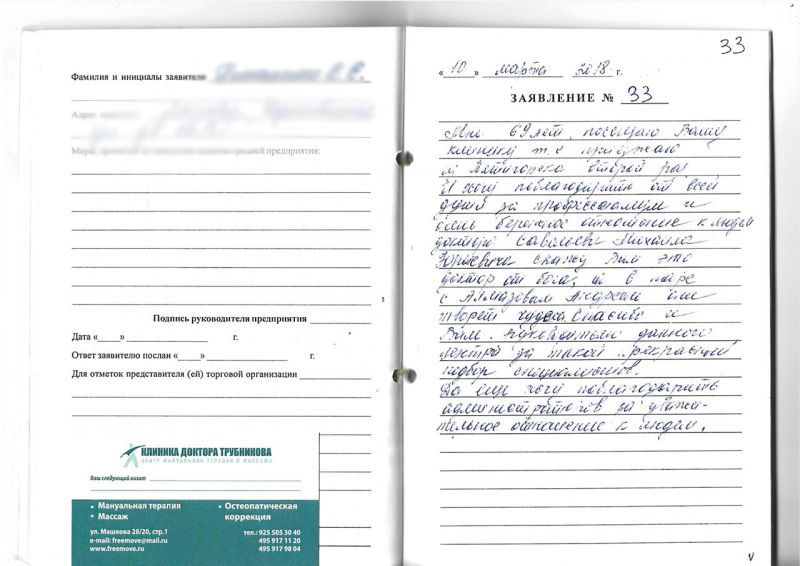 Фамилия и инициалы заявителя
Адрес
Меры,
предприятия:
Подпись руководителя предприятия
Дата «___» г.
Ответ заявителю послан «___» г.
Для отметок представителя (ей) торговой организации
КЛИНИКА ДОКТОРА ТРУБНИКОВА
ЦЕНТР МАНУАЛЬНОЙ ТЕРАПИИ И МАССАЖА
Ваш следующий визит
• Мануальная терапия
• Массаж
• Остеопатическая
коррекция
ул. Машкова 28/20, стр.1
e-mail: freemove@mail.ru
www.freemove.ru
тел.: 925 505 30 40
495 917 11 20
495 917 98 04
33
«10» марта 2018 г.
ЗАЯВЛЕНИЕ № 33
Мне 69 лет, посещаю Вашу
клинику т.к приезжаю
из Пятигорска второй раз
И хочу поблагодарить от всей
души за профессионализм и
бережное отношение к людям
доктора Савельева Михаила
Юрьевича скажу Вам это
доктор от бога, а в паре
с Алмазовым Андреем они
творят чудеса. Спасибо и
Вам, руководителю данного
центра за такой прекрасный
подбор специалистов.
Да еще хочу поблагодарить
администраторов за уважи-
тельное отношение к людям.